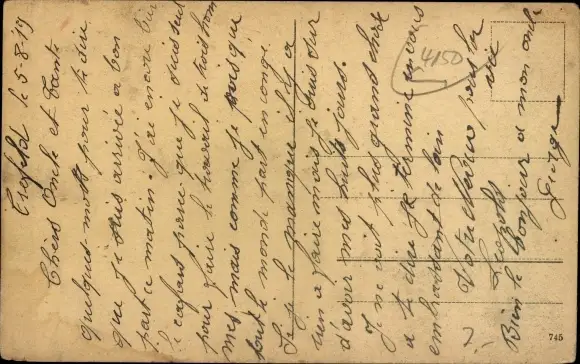 Crefeld le 5.8.19
Chers Oncle et Tante
quelques mots pour te dire
que je suis arrivée a bon
part ce matin. J'ai encore
parce que je suis seul
pour faire le travail de trois hom
mes mais comme je vois que
tout le monde part en conge
Si je le manque il y a
rien a faire mais je suis sur
d'avoir mes huits jours.
Je ne voit plus grand chose
a te dire je termine en vous
embrassant de loin
Votre Neveu pour la
vie
Bien le bonjour a mon oncle
4150
745